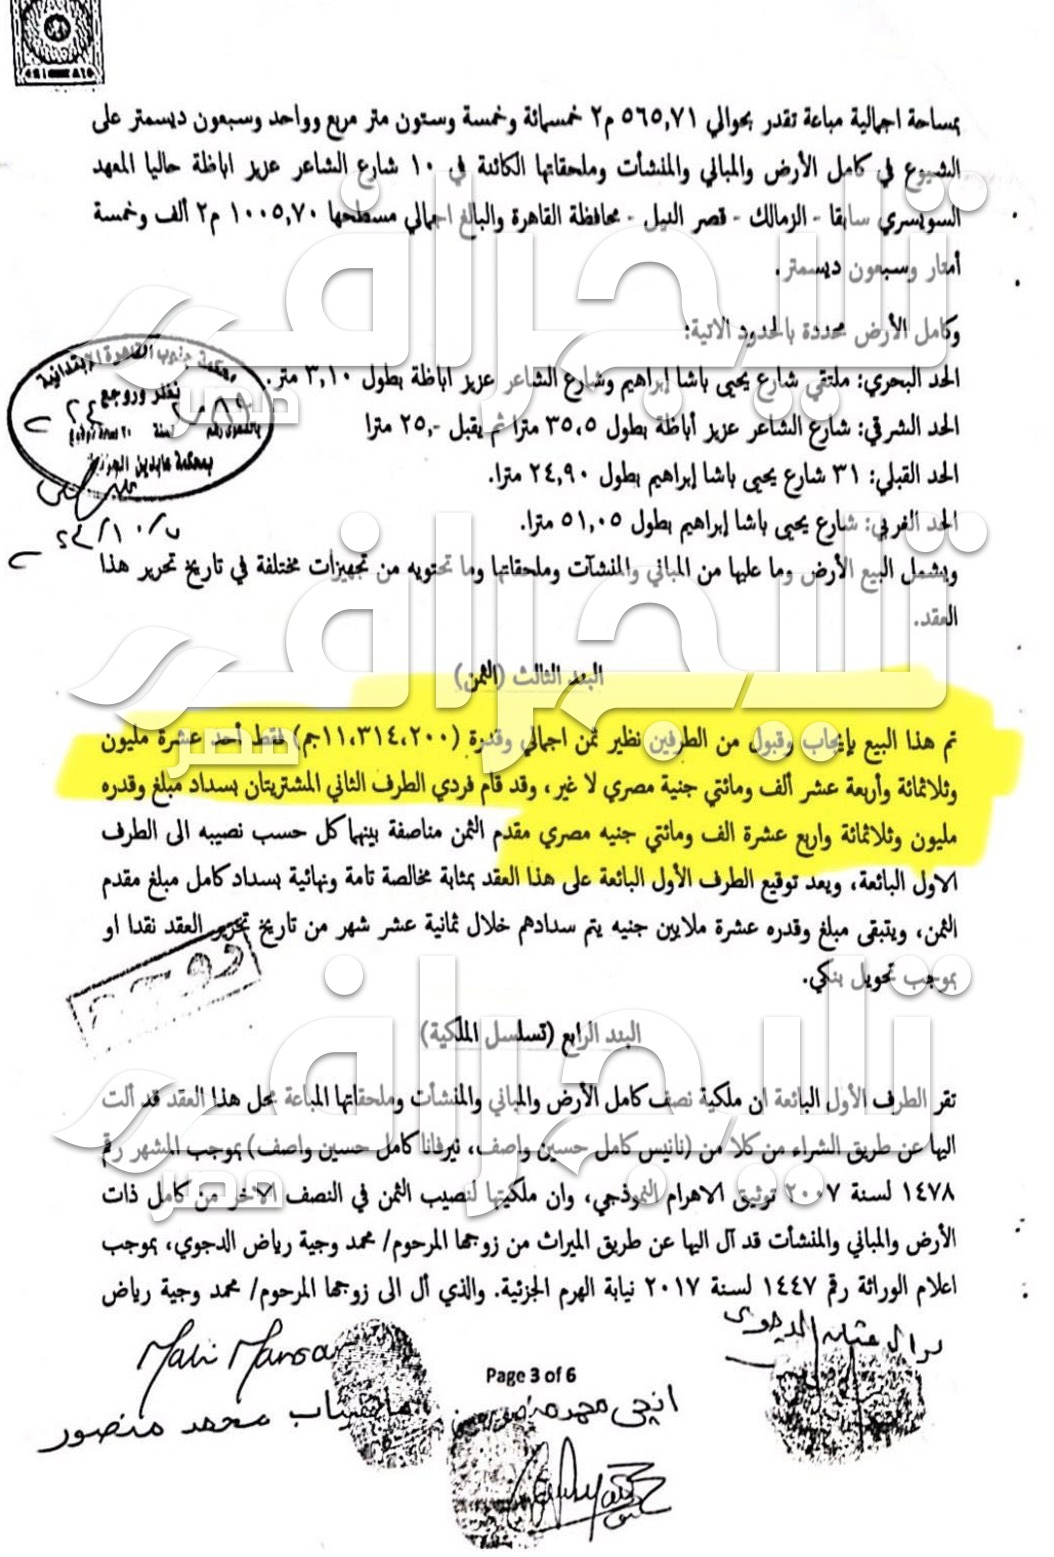 بمساحة اجمالية مباعة تقدر بحوالي ٥٦٥,٧١ م٢ خمسمائة وخمسة وستون متر مربع وواحد وسبعون ديسمتر على
الشيوع في كامل الأرض والمباني والمنشأت وملحقاتها الكائنة في ١٠ شارع الشاعر عزيز اباظة حاليا المعهد
السويسري سابقا - الزمالك - قصر النيل - محافظة القاهرة والبالغ اجمالي مسطحها ١٠٠٥,٧٠ م٢ ألف وخمسة
أمتار وسبعون ديسمتر.
وكامل الأرض محددة بالحدود الاتية:
الحد البحري: ملتقي شارع يحيى باشا إبراهيم وشارع الشاعر عزيز اباظة بطول ٣,١٠ متر.
الحد الشرقي: شارع الشاعر عزيز أباظة بطول ٣٥,٥ مترا ثم يقبل ٢٥,٠ مترا
الحد القبلي: ٣١ شارع يحيى باشا إبراهيم بطول ٢٤,٩٠ مترا.
الحد الغربي: شارع يحيى باشا إبراهيم بطول ٥١,٠٥ مترا.
ويشمل البيع الأرض وما عليها من المباني والمنشآت وملحقاتها وما تحتويه من تجهيزات مختلفة في تاريخ تحرير هذا
العقد.
محكمة جنوب القاهرة الابتدائية
نظر وروجع
بمحكمة عابدين الجزئية
البند الثالث (الثمن)
تم هذا البيع بإيجاب وقبول من الطرفين نظير ثمن اجمالي وقدرة (١١،٣١٤،٢٠٠جم) فقط أحد عشرة مليون
وثلاثمائة وأربعة عشر ألف ومائتي جنية مصري لا غير، وقد قام فردي الطرف الثاني المشتريتان بسداد مبلغ وقدره
مليون وثلاثمائة واربع عشرة الف ومائتي جنيه مصري مقدم الثمن مناصفة بينهما كل حسب نصيبه الى الطرف
الاول البائعة، ويعد توقيع الطرف الأول البائعة على هذا العقد بمثابة مخالصة تامة ونهائية بسداد كامل مبلغ مقدم
الثمن، ويتبقى مبلغ وقدره عشرة ملايين جنيه يتم سدادهم خلال ثمانية عشر شهر من تاريخ تحرير العقد نقدا او
بموجب تحويل بنكي.
البند الرابع (تسلسل الملكية)
تقر الطرف الأول البائعة ان ملكية نصف كامل الأرض والمباني والمنشأت وملحقاتها المباعة محل هذا العقد قد ألت
اليها عن طريق الشراء من كلا من (نانيس كامل حسين واصف، نيرفانا كامل حسين واصف) بموجب المشهر رقم
١٤٧٨ لسنة ٢٠٠٧ توثيق الاهرام النموذجي، وان ملكيتها لنصيب الثمن في النصف الاخر من كامل ذات
الأرض والمباني والمنشأت قد آل اليها عن طريق الميراث من زوجها المرحوم/ محمد وجية رياض الدجوي، بموجب
اعلام الوراثة رقم ١٤٤٧ لسنة ٢٠١٧ نيابة الهرم الجزئية. والذي أل الى زوجها المرحوم/ محمد وجية رياض
نوال عثمان الدجوى
Page 3 of 6
Mahi Mansour
ماهيتاب محمد منصور
انجى محمد منصور
تليجراف
مصر
تليجراف
مصر
تليجراف
مصر